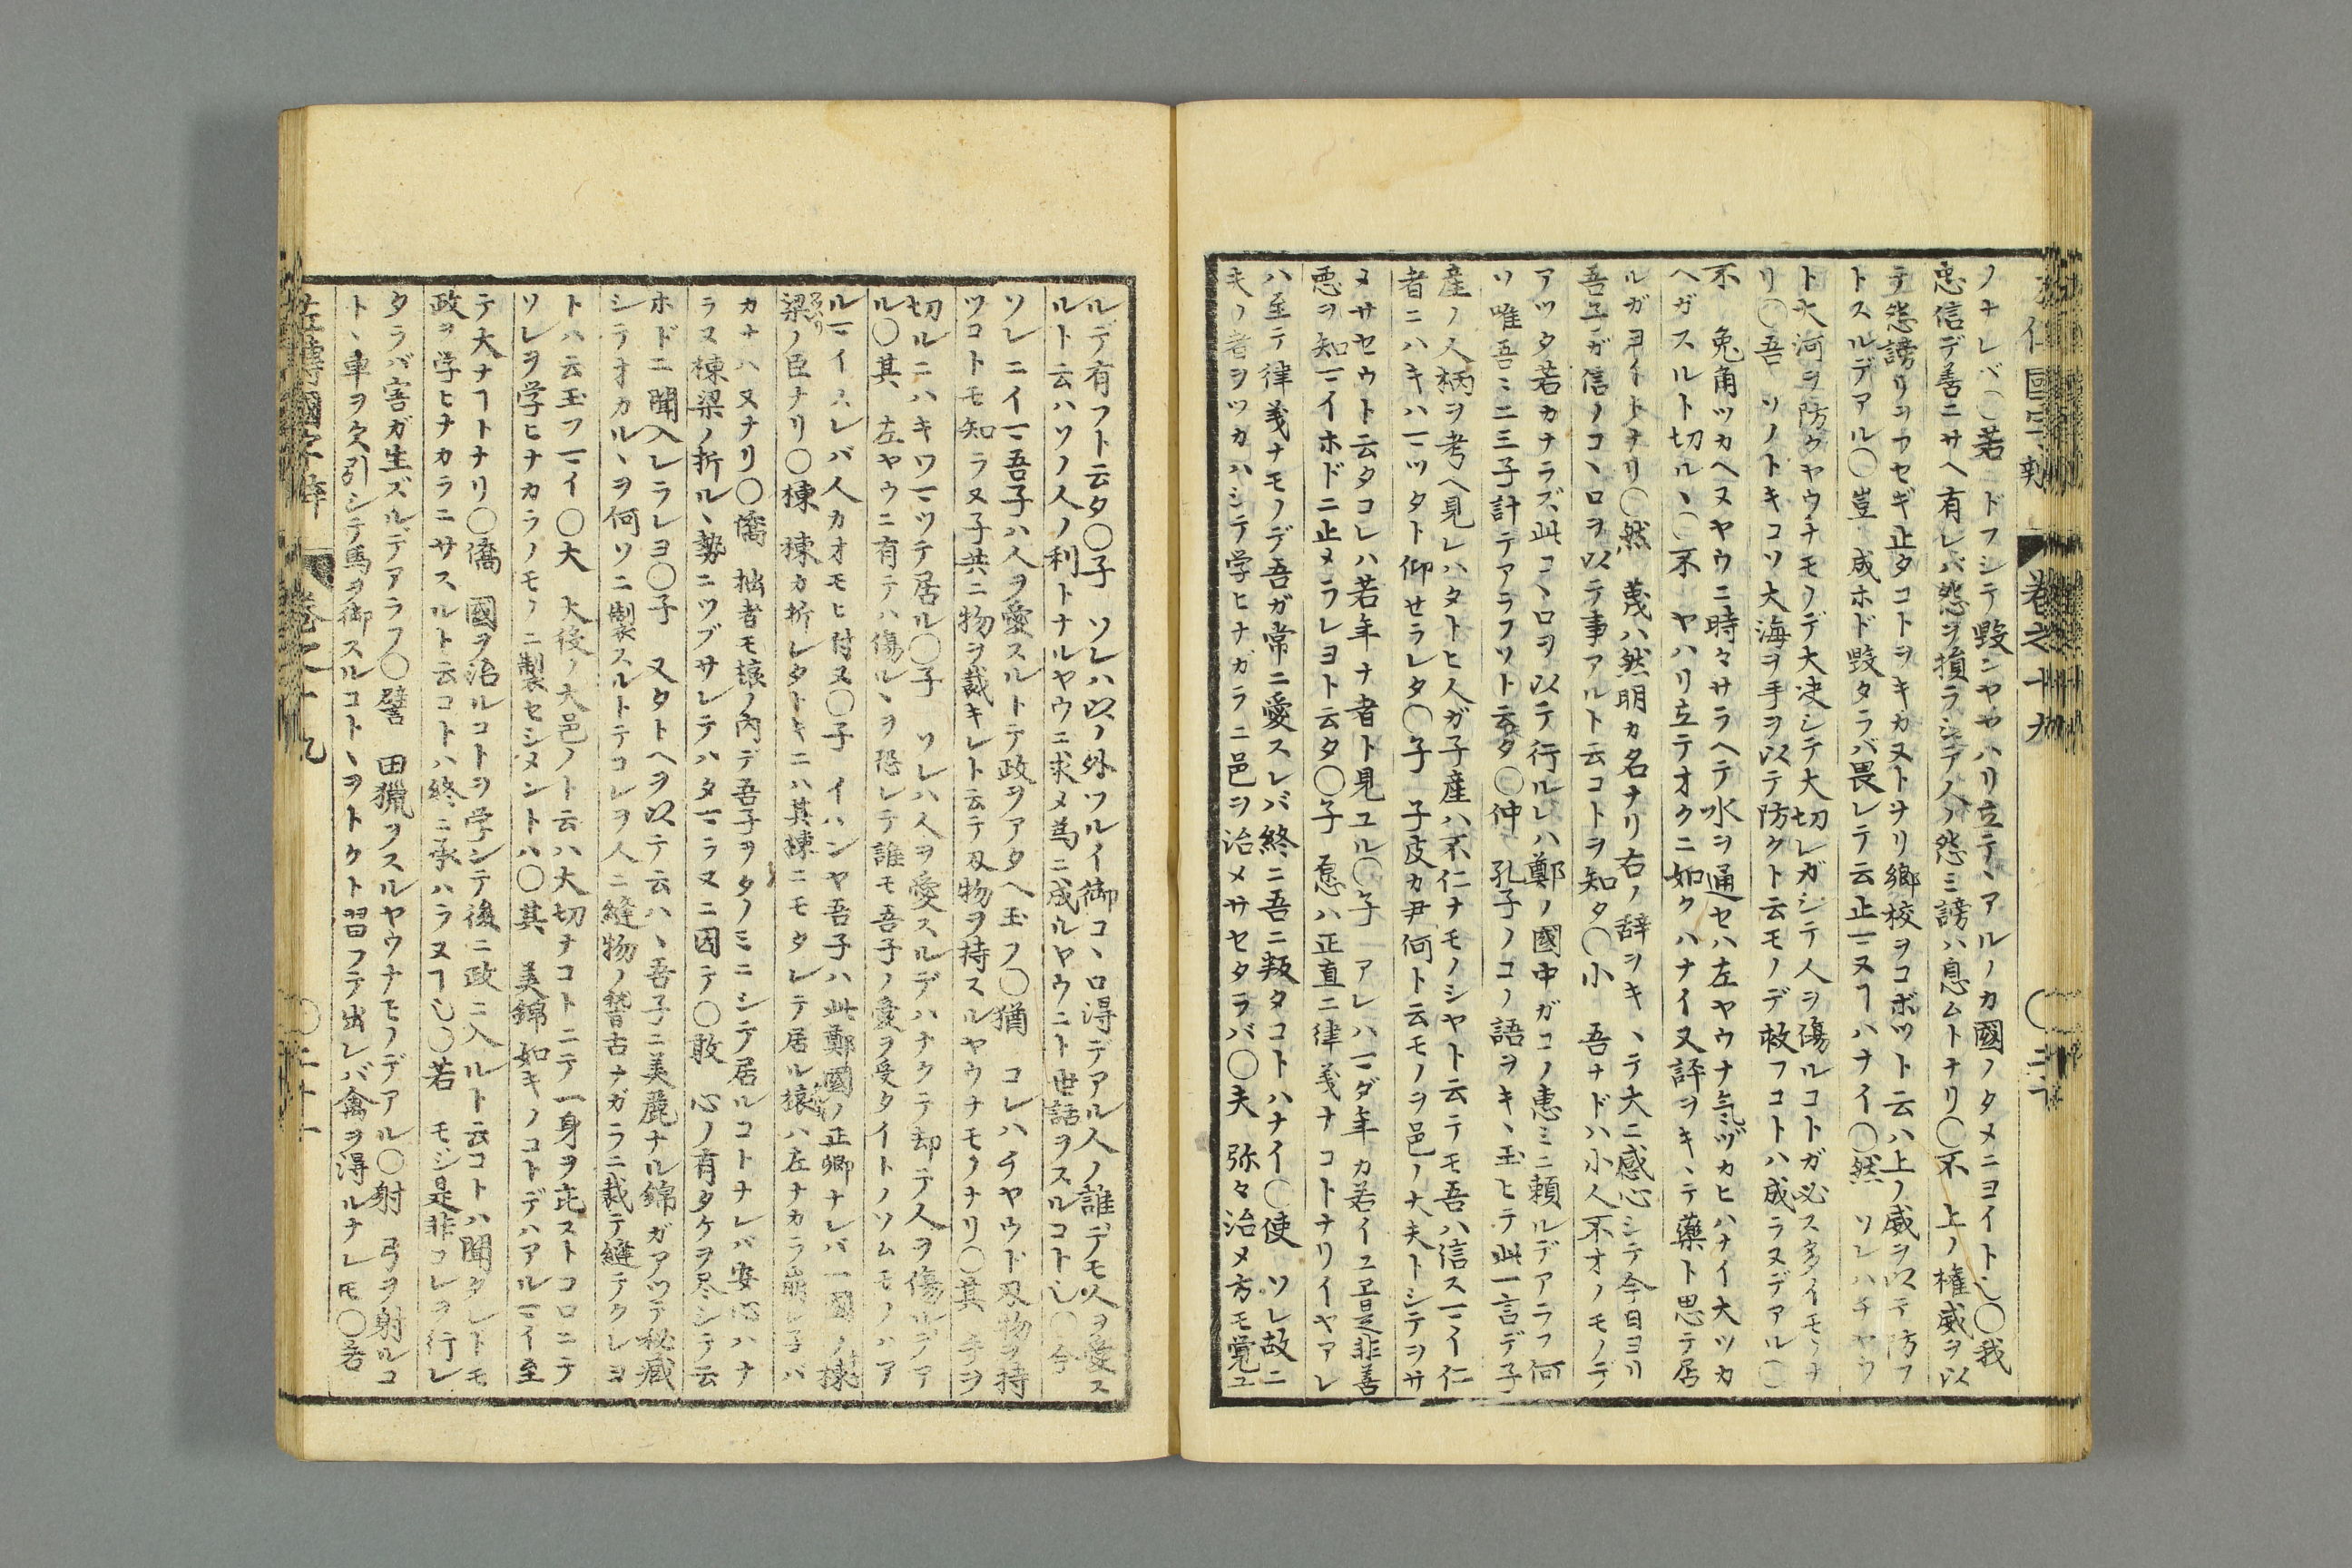 ノナレバ〇若　ドフシテ毀ンヤヤハリ立テヽアルノカ國ノタメニヨイト也〇我
忠信デ善ニサヘ有レバ怨ヲ損ラシテ人ノ怨ミ謗ハ息ムトナリ〇不　上ノ權威ヲ以
テ怨謗リヲフセギ止タコトヲキカヌトナリ郷校ヲコボツト云ハ上ノ威ヲ以テ防フ
トスルデアル〇豈　成ホド毀タラバ畏レテ云止マヌヿハナイ〇然　ソレハチヤウ
ト大河ヲ防クヤウナモノデ大决シテ大切レガシテ人ヲ傷ルコトガ必スタイモノナ
リ〇吾　ソノトキコソ大海ヲ手ヲ以テ防クト云モノデ救フコトハ成ラヌデアル〇
不　兔角ツカヘヌヤウニ時々サラヘテ水ヲ通セハ左ヤウナ気ヅカヒハナイ大ツカ
ヘガスルト切ルヽ〇不　ヤハリ立テオクニ如クハナイ又評ヲキヽテ藥ト思テ居
ルガヨイトナリ〇然　蔑ハ然明カ名ナリ右ノ辞ヲキヽテ大ニ感心シテ今日ヨリ
吾子ガ信ノコヽロヲ以テ事アルト云コトヲ知タ〇小　吾ナドハ小人不オノモノデ
アツタ若カナラズ此コヽロヲ以テ行ルレハ鄭ノ國中ガコノ恵ミニ頼ルデアラフ何
ソ唯吾ミニ三子計テアラフソト云タ〇仲　孔子ノコノ語ヲキヽ玉ヒテ此一言デ子
産ノ人柄ヲ考ヘ見レハタトヒ人ガ子産ハ不仁ナモノシヤト云テモ吾ハ信スマイ仁
者ニハキハマツタト仰せラレタ〇子　子皮カ尹何ト云モノヲ邑ノ大夫トシテヲサ
メサセウト云タコレハ若年ナ者ト見ユル〇子　アレハマダ年カ若イユヱ是非善
悪ヲ知マイホドニ止メラレヨト云タ〇子　愿ハ正直ニ律義ナコトナリイヤアレ
ハ至テ律義ナモノデ吾ガ常ニ愛スレバ終ニ吾ニ叛タコトハナイ〇使　ソレ故ニ
夫ノ者ヲツカハシテ学ヒナガラニ邑ヲ治メサセタラバ〇夫　弥々治メ方モ覚ユ
ルデ有フト云タ〇子　ソレハ以ノ外ワルイ御コヽロ得デアル人ノ誰デモ人ヲ愛ス
ルト云ハソノ人ノ利トナルヤウニ求メ為ニ成ルヤウニト世話ヲスルコト也〇今
ソレニイマ吾子ハ人ヲ愛スルトテ政ヲアタヘ玉フ〇猶　コレハチヤウド刄物ヲ持
ツコトモ知ラヌ子共ニ物ヲ截キレト云テ刄物ヲ持スルヤウナモノナリ〇其　手ヲ
切ルニハキワマツテ居ル〇子　ソレハ人ヲ愛スルデハナクテ却テ人ヲ傷ルデア
ル〇其　左ヤウニ有テハ傷ルヽヲ恐レテ誰モ吾子ノ愛ヲ受タイトノソムモノハア
ルマイスレバ人カオモヒ付ヌ〇子　イハンヤ吾子ハ此鄭國ノ正卿ナレバ一國ノ棟
梁ノ臣ナリ〇棟　棟カ折レタトキニハ其棟ニモタレテ居ル榱ハ左ナカラ崩レ子バ
カナハヌナリ〇僑　拙者モ榱ノ內デ吾子ヲタノミニシテ居ルコトナレバ安心ハナ
ラヌ棟梁ノ折ルヽ勢ニツブサレテハタマラヌニ因テ〇敢　心ノ有タケヲ尽シテ云
ホドニ聞入レラレヨ〇子　又タトヘヲ以テ云ハヽ吾子ニ美麗ナル錦ガアツテ秘蔵
シテオカルヽヲ何ソニ製スルトテコレヲ人ニ縫物ノ督古ナガラニ裁テ縫テクレヨ
トハ云玉フマイ〇大　大後ノ大邑ノト云ハ大切ナコトニテ一身ヲ庇ストコロニテ
ソレヲ学ヒナカラノモノニ製セシメントハ〇其　美錦如キノコトデハアルマイ至
テ大ナヿトナリ〇僑　國ヲ治ルコトヲ学シテ後ニ政ニ入ルト云コトハ聞タレトモ
政ヲ学ヒナカラニサスルト云コトハ終ニ承ハラヌヿ也〇若　モシ是非コレヲ行レ
タラバ害ガ生ズルデアラフ〇譬　田猟ヲスルヤウナモノデアル〇射　弓ヲ射ルコ
トヽ車ヲ久引シテ馬ヲ御スルコトヽヲトクト習フテ出レバ禽ヲ得ルナレ𪜈〇若
左傳國字辯　巻之十九　〇二十一